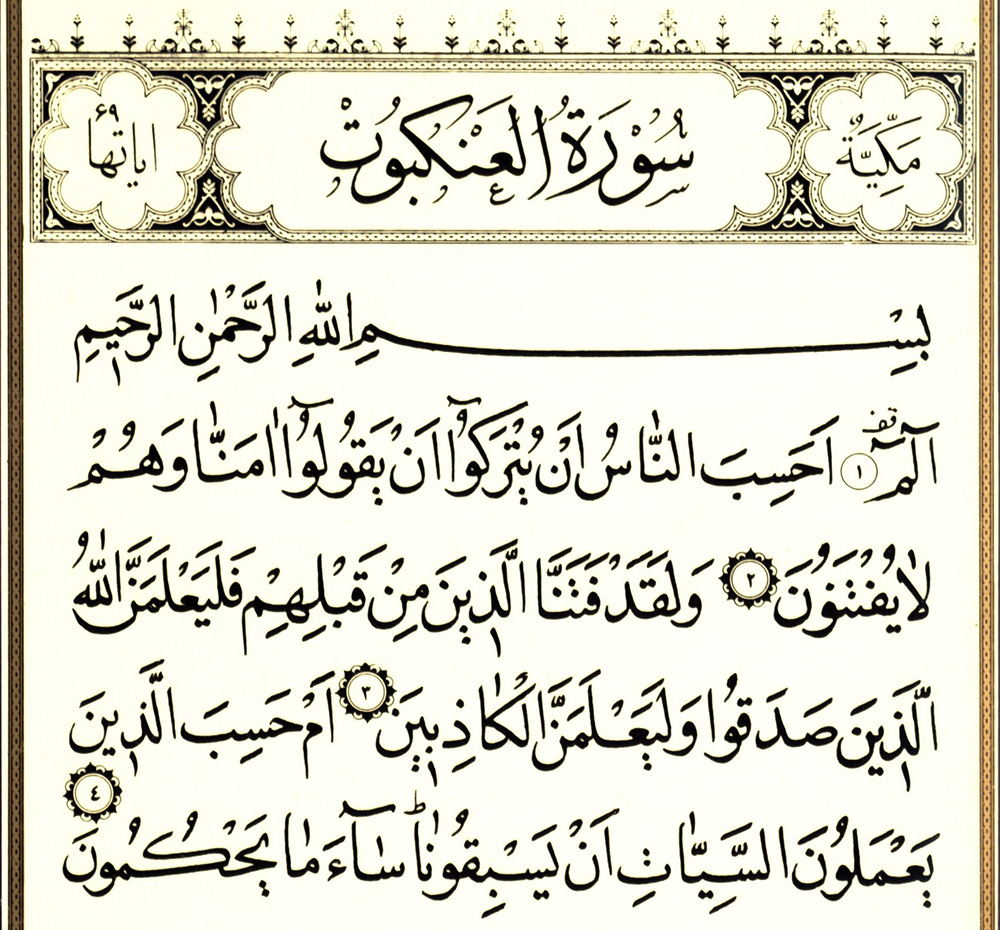 مَكِّيَّةٌ سُوْرَةُ الْعَنْكَبُوتِ اٰيَاتُهَا ۶۹
بِسْمِ اللّٰهِ الرَّحْمٰنِ الرَّحٖيمِ
الٓمٓ ۚقف ﴿١﴾ اَحَسِبَ النَّاسُ اَنْ يُتْرَكُٓوا اَنْ يَقُولُٓوا اٰمَنَّا وَهُمْ
لَا يُفْتَنُونَ ﴿٢﴾ وَلَقَدْ فَتَنَّا الَّذٖينَ مِنْ قَبْلِهِمْ فَلَيَعْلَمَنَّ اللّٰهُ
الَّذٖينَ صَدَقُوا وَلَيَعْلَمَنَّ الْكَاذِبٖينَ ﴿٣﴾ اَمْ حَسِبَ الَّذٖينَ
يَعْمَلُونَ السَّيِّـَٔاتِ اَنْ يَسْبِقُونَاؕ سَٓاءَ مَا يَحْكُمُونَ ﴿٤﴾